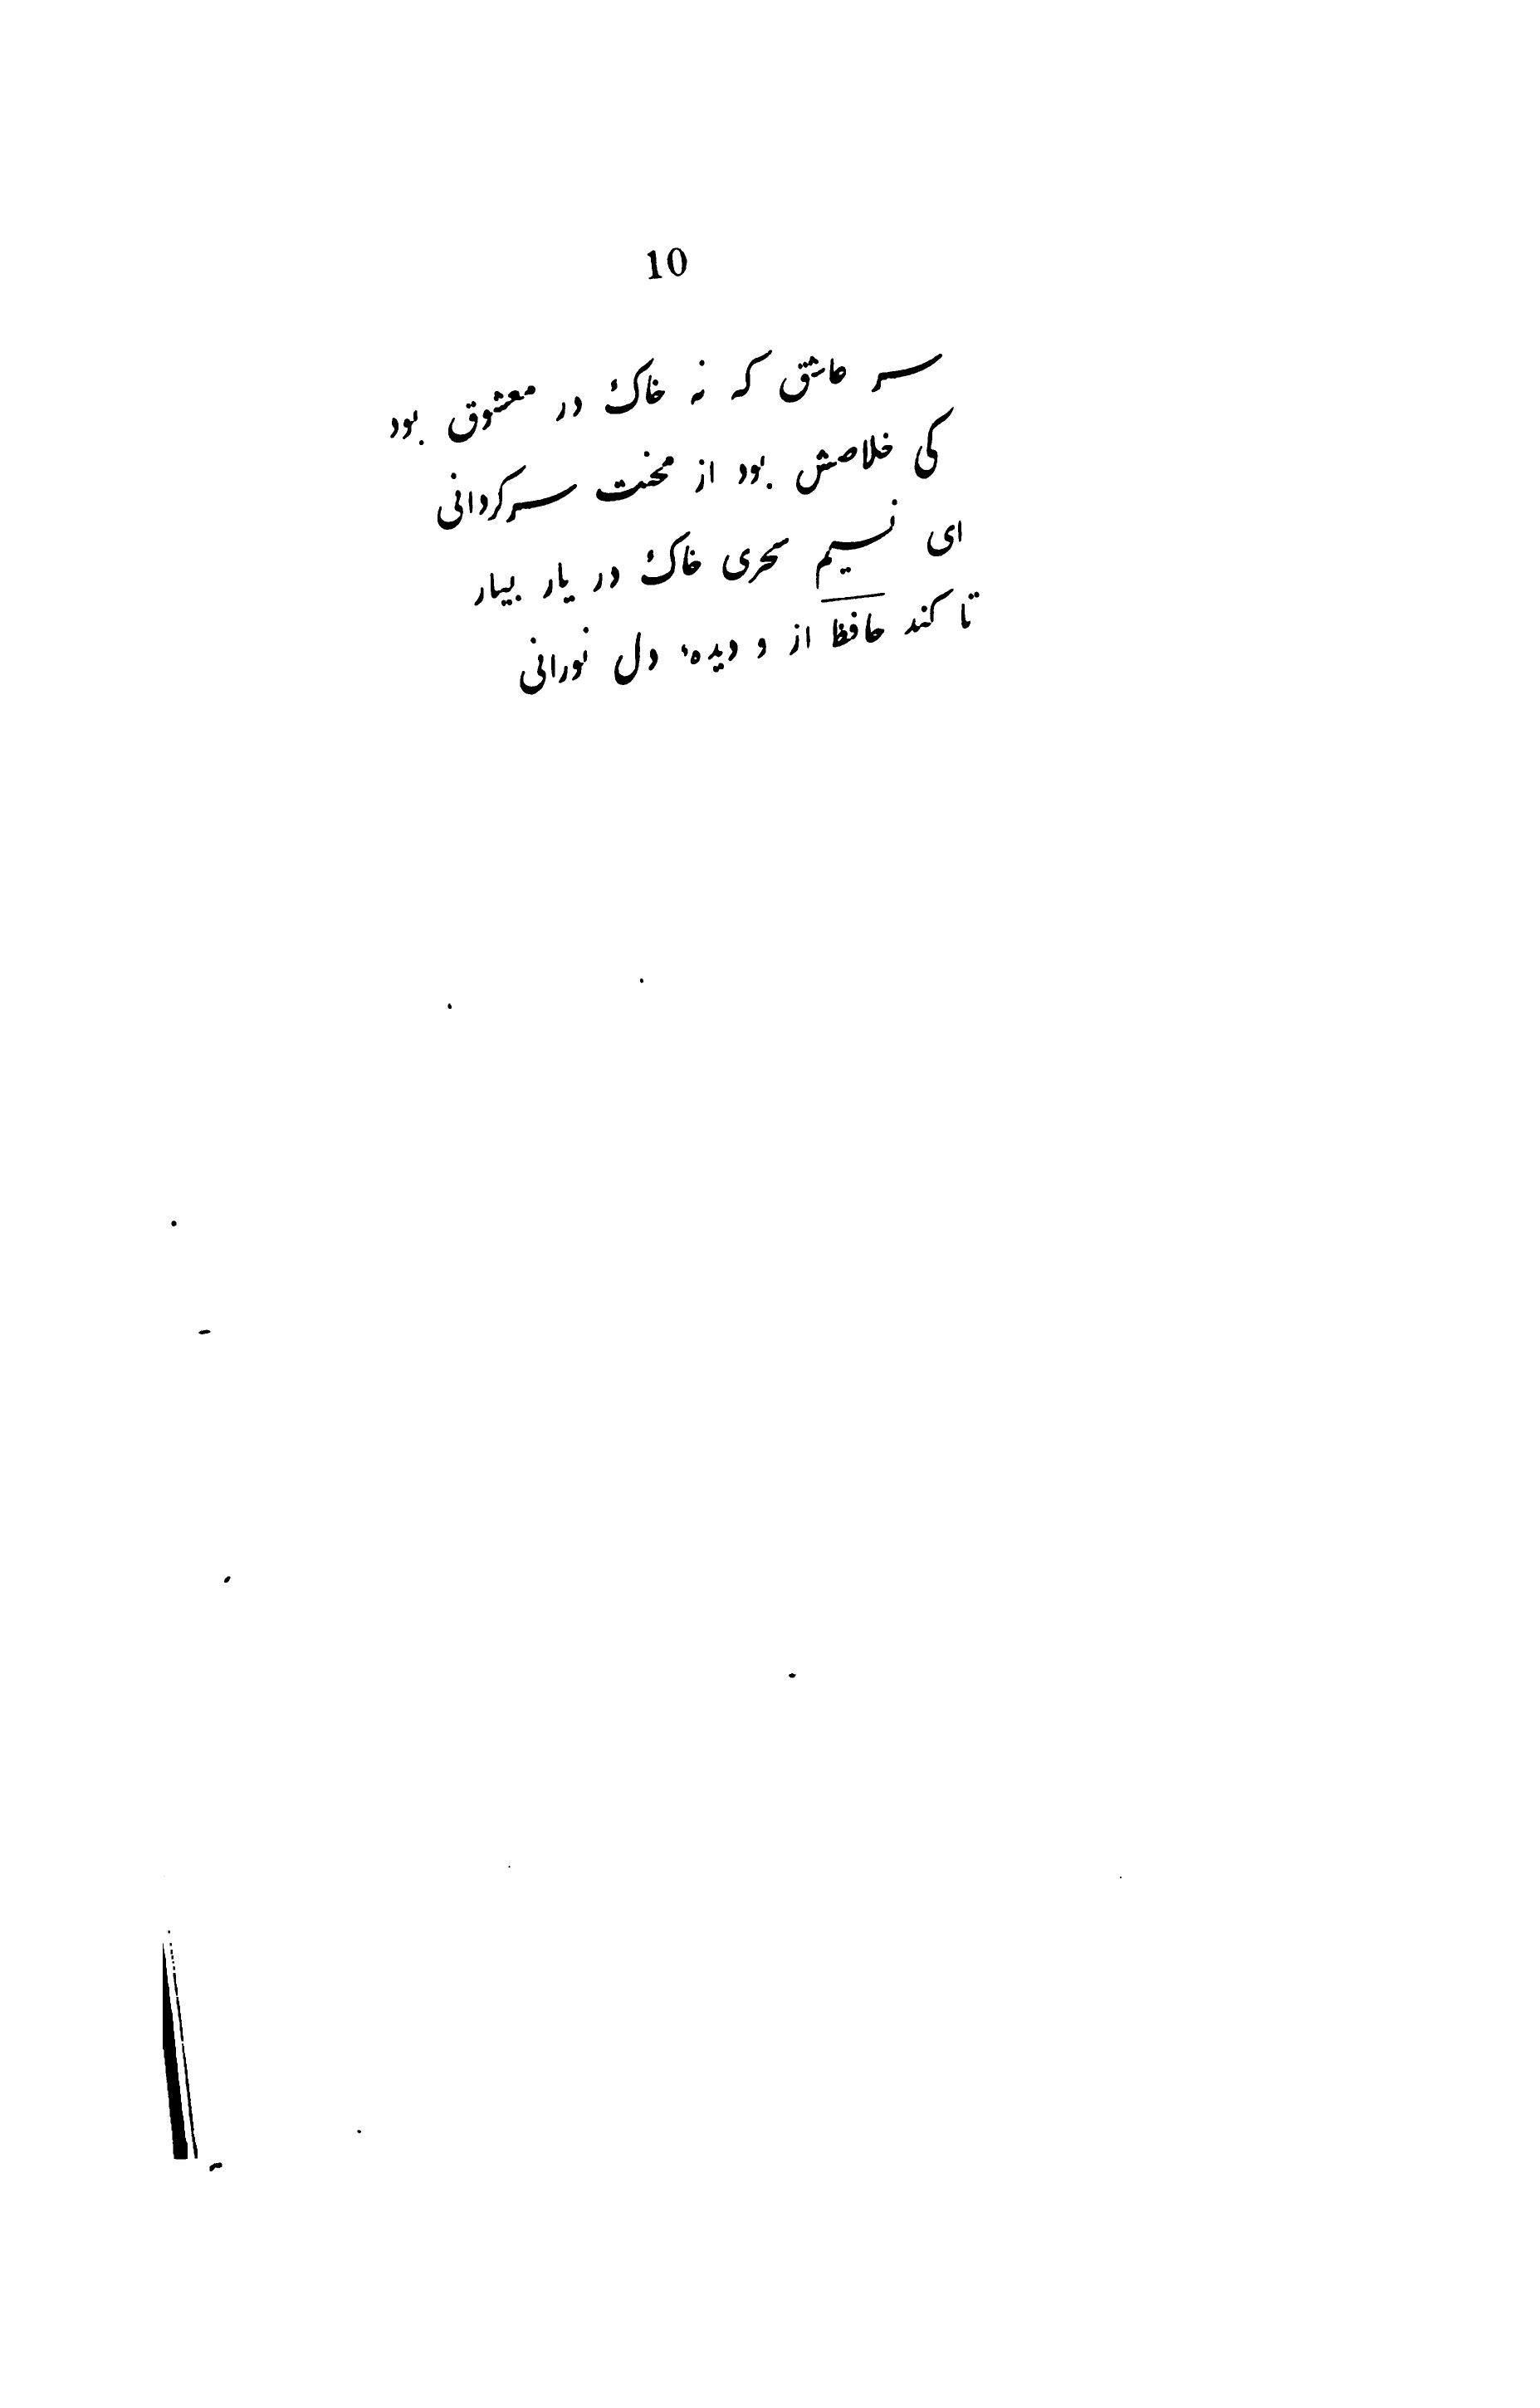 10
سر عاشق که نه خاک در معشوق بود
کی خلاصش بود از محنت سرکردانی
ای نسیم سحری خاک در یار بیار
تا کند حافظ از و دیدهٔ دل نورانی